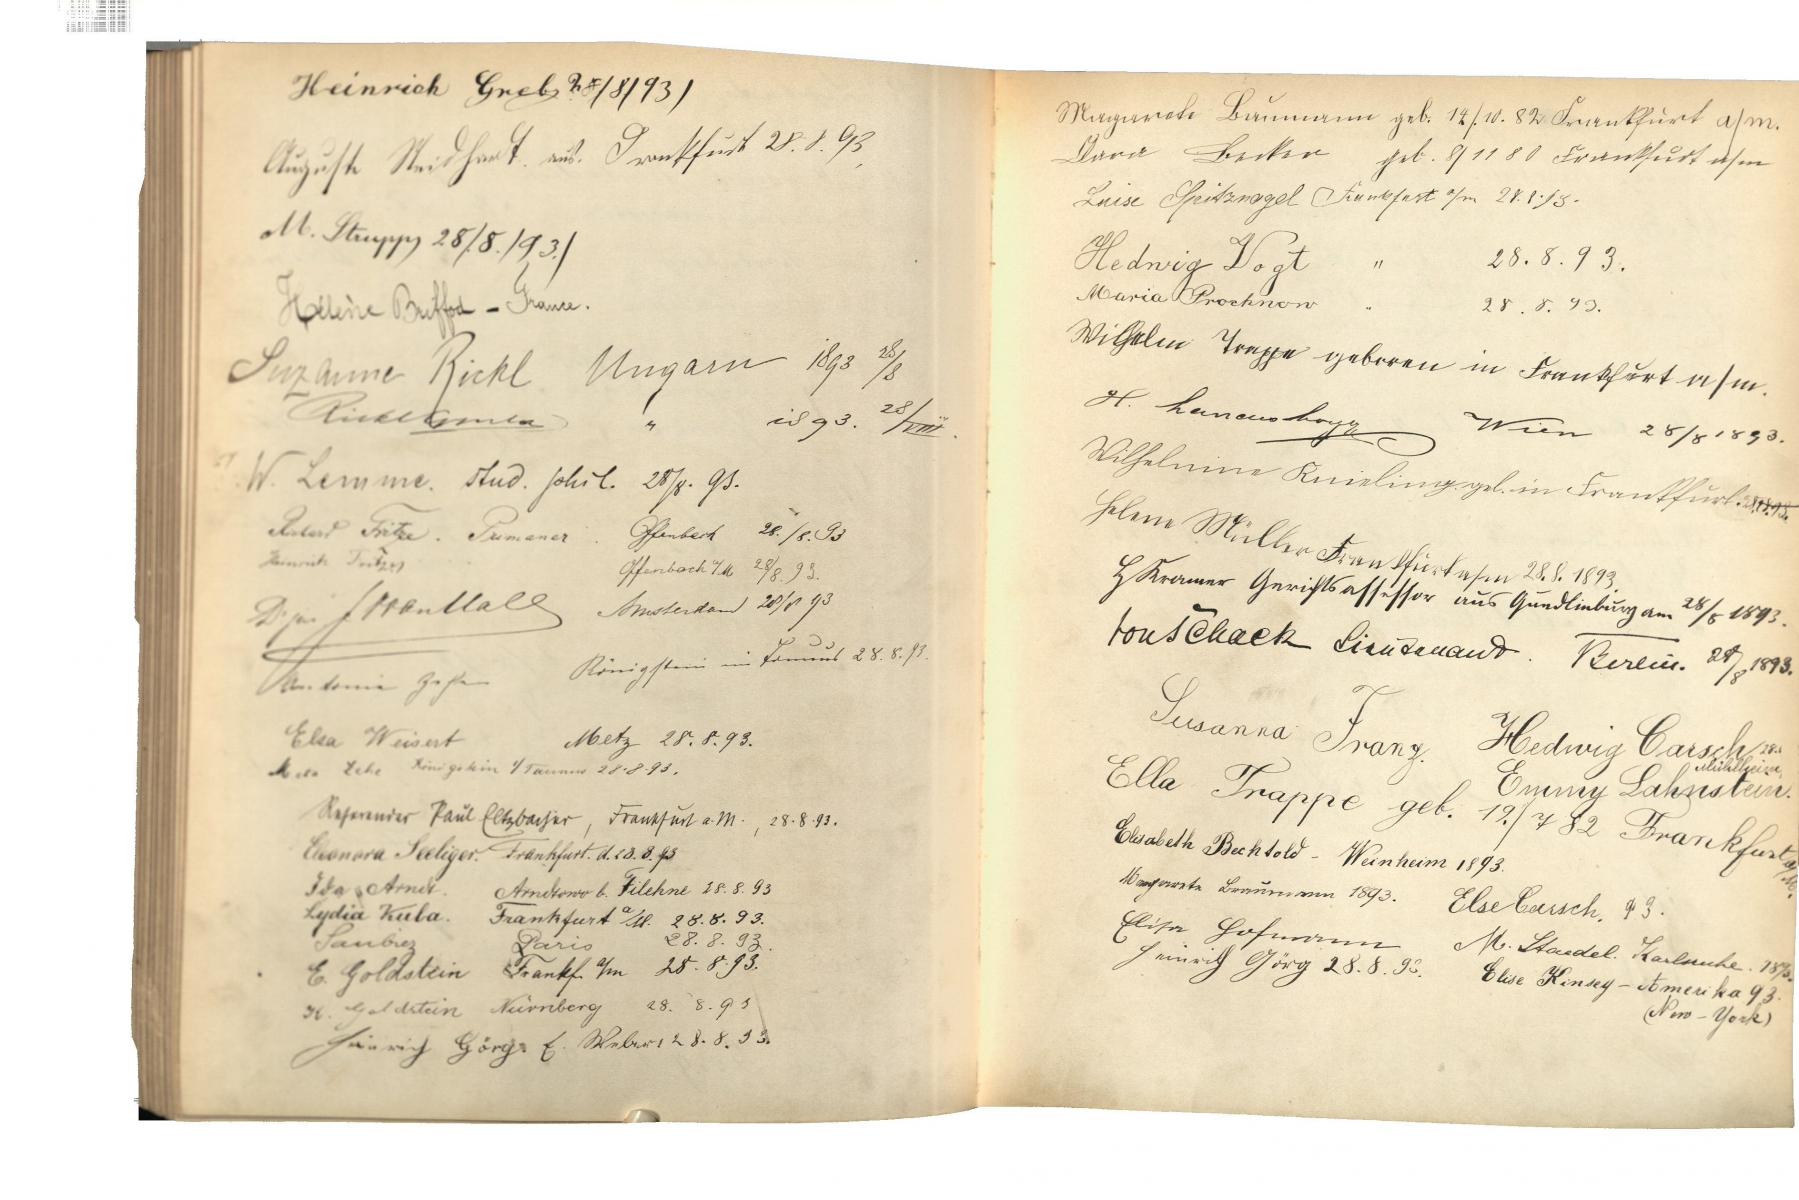 Heinrich Greb 28/8/93/
Auguste Neidhardt aus Frankfurt 28.8.93,
M. Strupp 28/8./93/
Hélène Briffod - France.
Suzanne Rickl Ungarn 1893 28/8
Rickl " 1893. 28/VIII.
W. Lemme. stud. phil. 28/8. 93.
Richard Fritze. Primaner. Offenbach 28./8.93
Heinrich Fritze Offenbach a/M 28/8. 93.
Dr jur Amsterdam 28/8 93
Antonie Königstein im Taunus 28.8.93.
Elsa Weisert Metz 28.8.93.
Königstein i/Taunus 28.8.93.
Referendar Paul Eltzbacher, Frankfurt a.M., 28.8.93.
Eleonora Seeliger. Frankfurt. d. 28.8.93
Ida Arndt. Arndtowo b. Filehne 28.8.93
Lydia Kuba. Frankfurt a/M. 28.8.93.
Paris 28.8.93.
E. Goldstein Frankf. a/m 28.8.93.
K. Goldstein Nürnberg 28.8.93
Heinrich Görg E. Weber 28.8.93.
Magarete Baumann geb. 14/.10.82 Frankfurt a/m.
Becker geb. 8/11 80 Frankfurt a/m
Luise Spitznagel Frankfurt a/m 28.8.93.
Hedwig Vogt " 28.8.93.
Maria Prochnow " 28.8.93.
Wilhelm Trappe geboren in Frankfurt a/m.
H. Wien 28/8 1893.
Wilhelmine Knieling geb. in Frankfurt. 28.8.93.
Helene Müller Frankfurt a/m 28.8.1893
H Kramer Gerichtsassessor aus Quedlinburg am 28/8 1893.
von Schack Lieutenant. Berlin. 28/8 1893.
Susanna Franz. Hedwig Carsch 28.
Mühlheim,
Emmy Lahnstein.
Ella Trappe geb. 19./7 82 Frankfurt a/M.
Elisabeth Bechtold - Weinheim 1893.
Margarete Braumann 1893. Else Carsch. 93.
Elisa Hofmann M. Staedel. Karlsruhe. 1893.
Heinrich Görg 28.8.93. Elise Kinsey - Amerika 93.
(New-York)